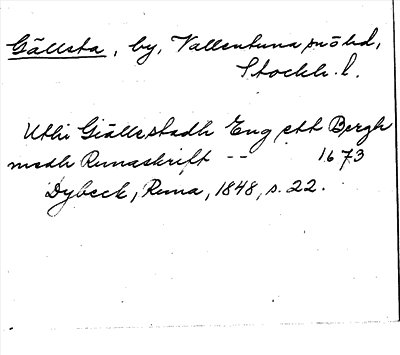 Gällsta, by, Vallentuna sn o hd,
Stockh. l.
Uthi Giällestadh Eng ett Bergh
medh Runaskrift -- 1673
Dybeck, Runa, 1848, s. 22.